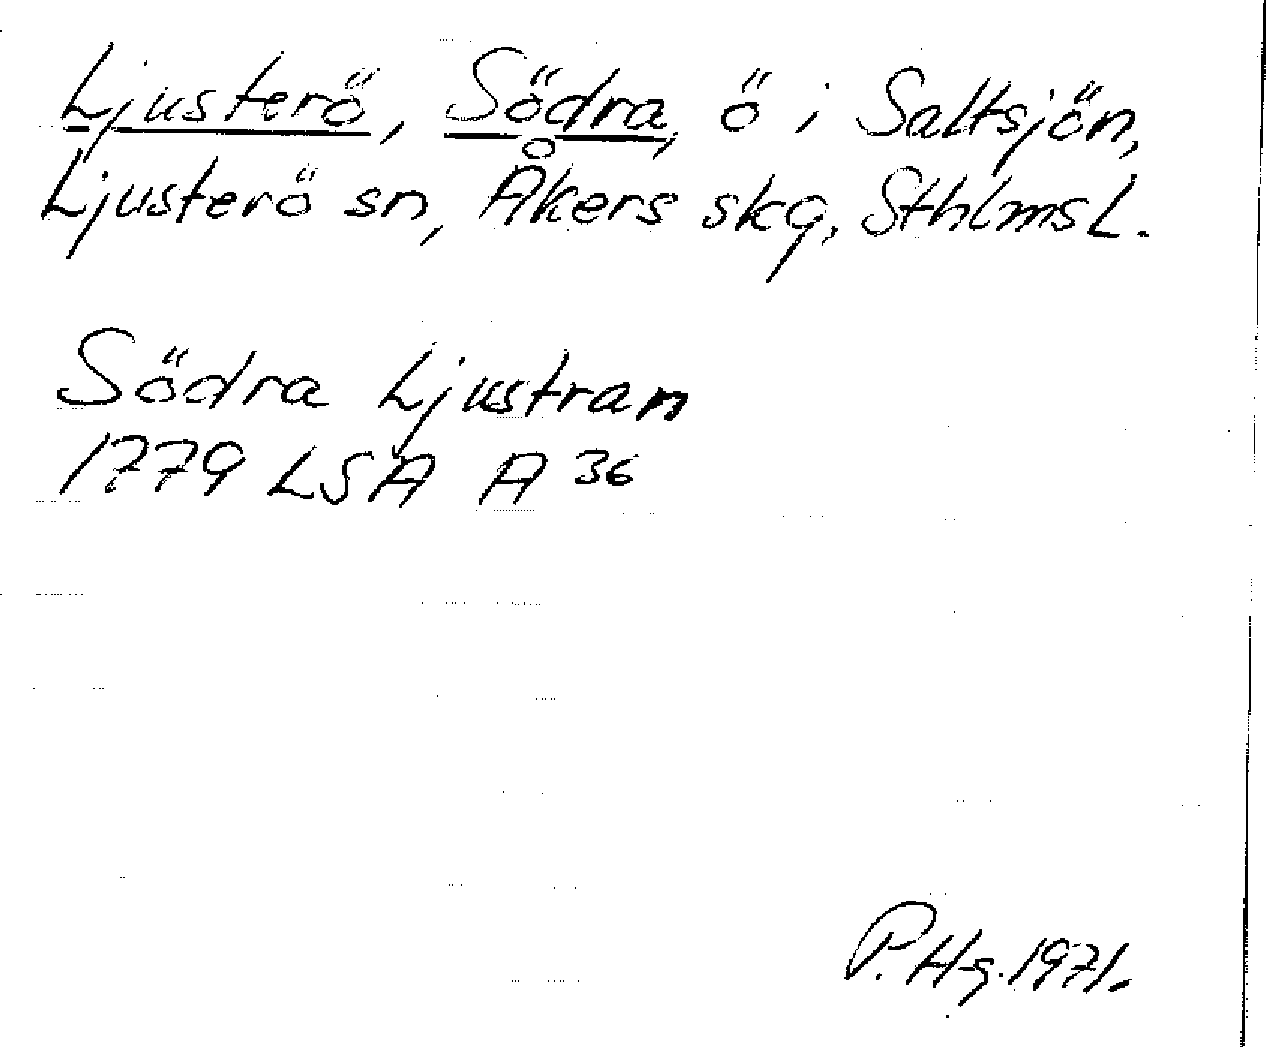 Ljusterö, Södra, ö i Saltsjön,
Ljusterö sn, Åkers skg, Sthlms L.
Södra Ljustran
1779 LSA A 36
P. Hg. 1971.